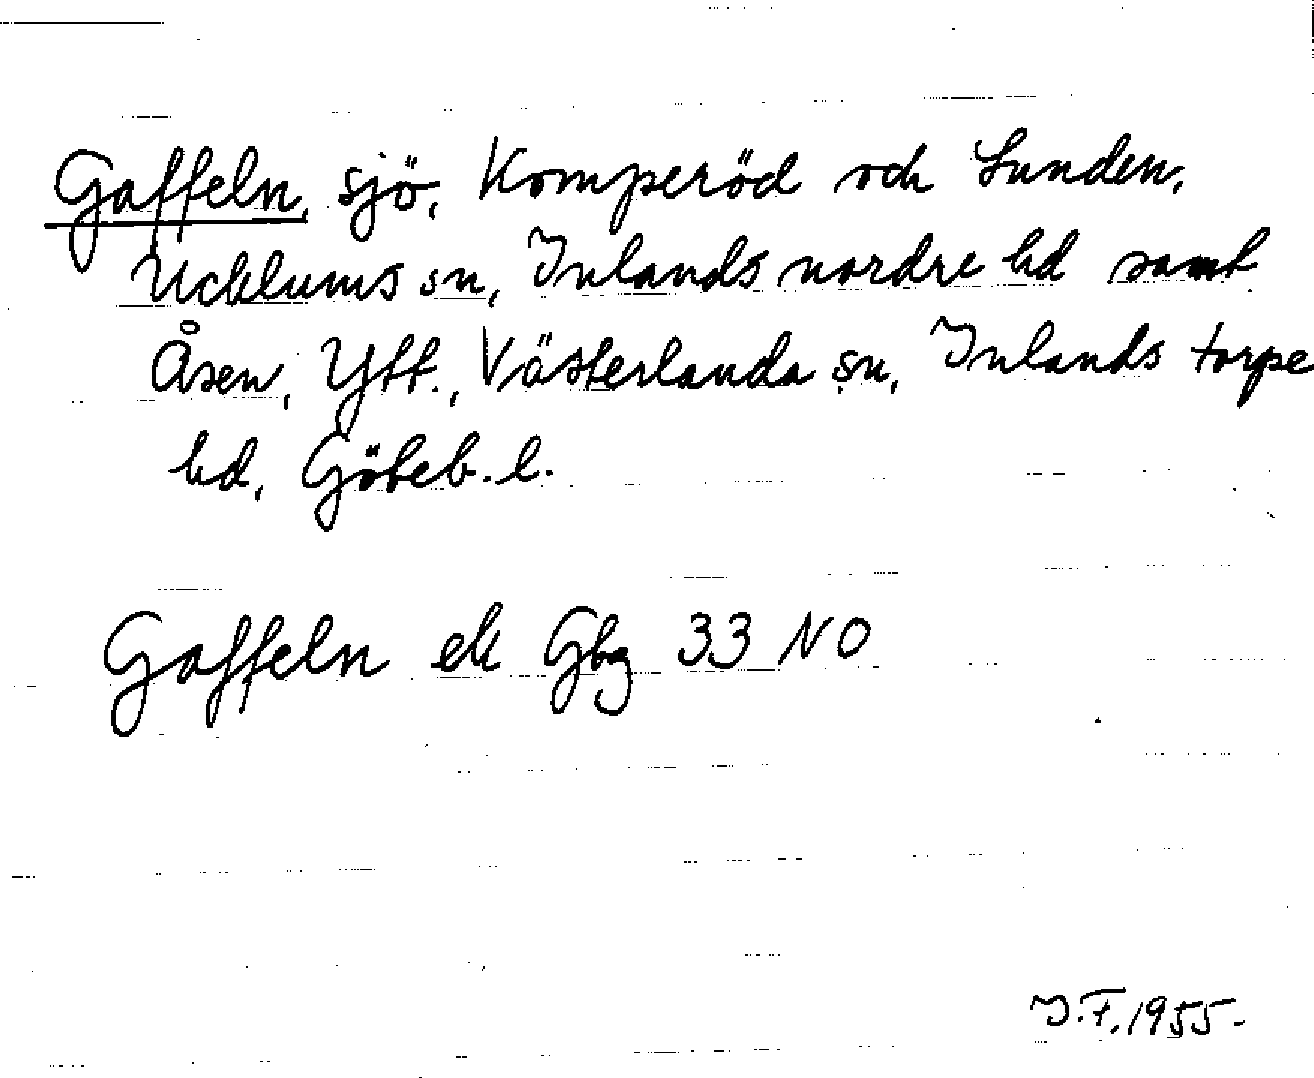 Gaffeln, sjö, Komperöd och Lunden,
Ucklums sn, Inlands nordre hd samt
Åsen, Ytt., Västerlanda sn, Inlands torpe
hd, Göteb. l.
Gaffeln ek Gbg 33 NO
I.F. 1955.